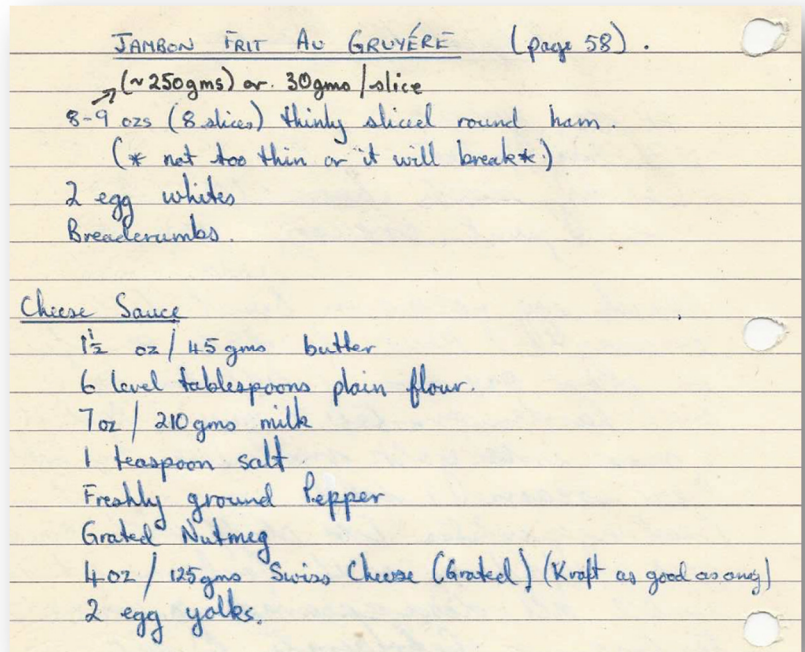 JAMBON FRIT AU GRUYÉRE (page 58).
(~250gms) or 30gms/slice
8-9 ozs (8 slices) thinly sliced round ham.
(* not too thin or it will break*)
2 egg whites
Breadcrumbs.
Cheese Sauce
1½ oz / 45 gms butter
6 level tablespoons plain flour.
7oz / 210 gms milk
1 teaspoon salt
Freshly ground Pepper
Grated Nutmeg
4oz / 125gms Swiss Cheese (Grated) (Kraft as good as any)
2 egg yolks.